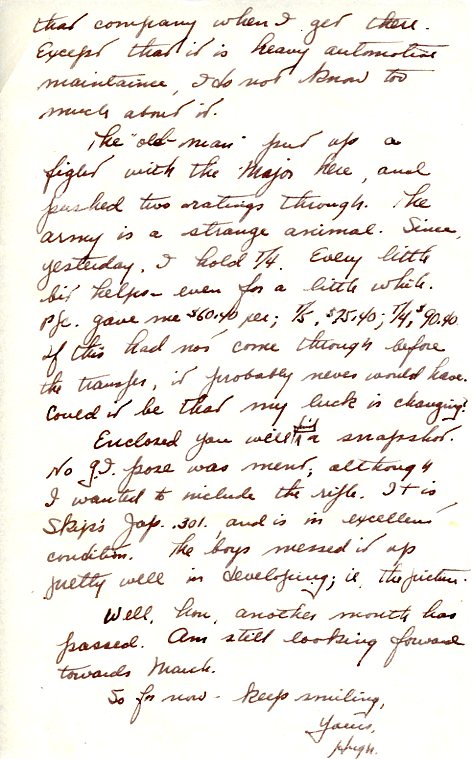 that company when I get there.
Except that it is heavy automotive
maintaince, I do not know too
much about it.
The "old-man" put up a
fight with the Major here, and
pushed two ratings through. The
army is a strange animal. Since,
yesterday, I hold T/4. Every little
bit helps - even for a little which.
Pfc. gave me $60.40 per; T/5, $75.40; T/4, $90.40.
If this had not come through before
the transfer, it probably never would have.
Could it be that my luck is changing?
Enclosed you will find a snapshot.
No G.I. pose was ment, although
I wanted to include the rifle. It is
Skip's Jap. .301, and is in excellent
condition. The boys messed it up
pretty well in developing; ie, the picture.
Well, hon, another month has
passed. Am still looking forward
towards March.
So for now - keep smiling,
Yours,
Hugh.